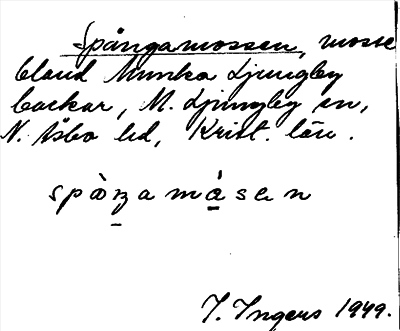 Spångamossen, mosse
bland Munka Ljungby
backar, M. Ljungby sn,
N. Åsbo hd, Krist. län.
spàŋa má̱sen
I. Ingers 1949.